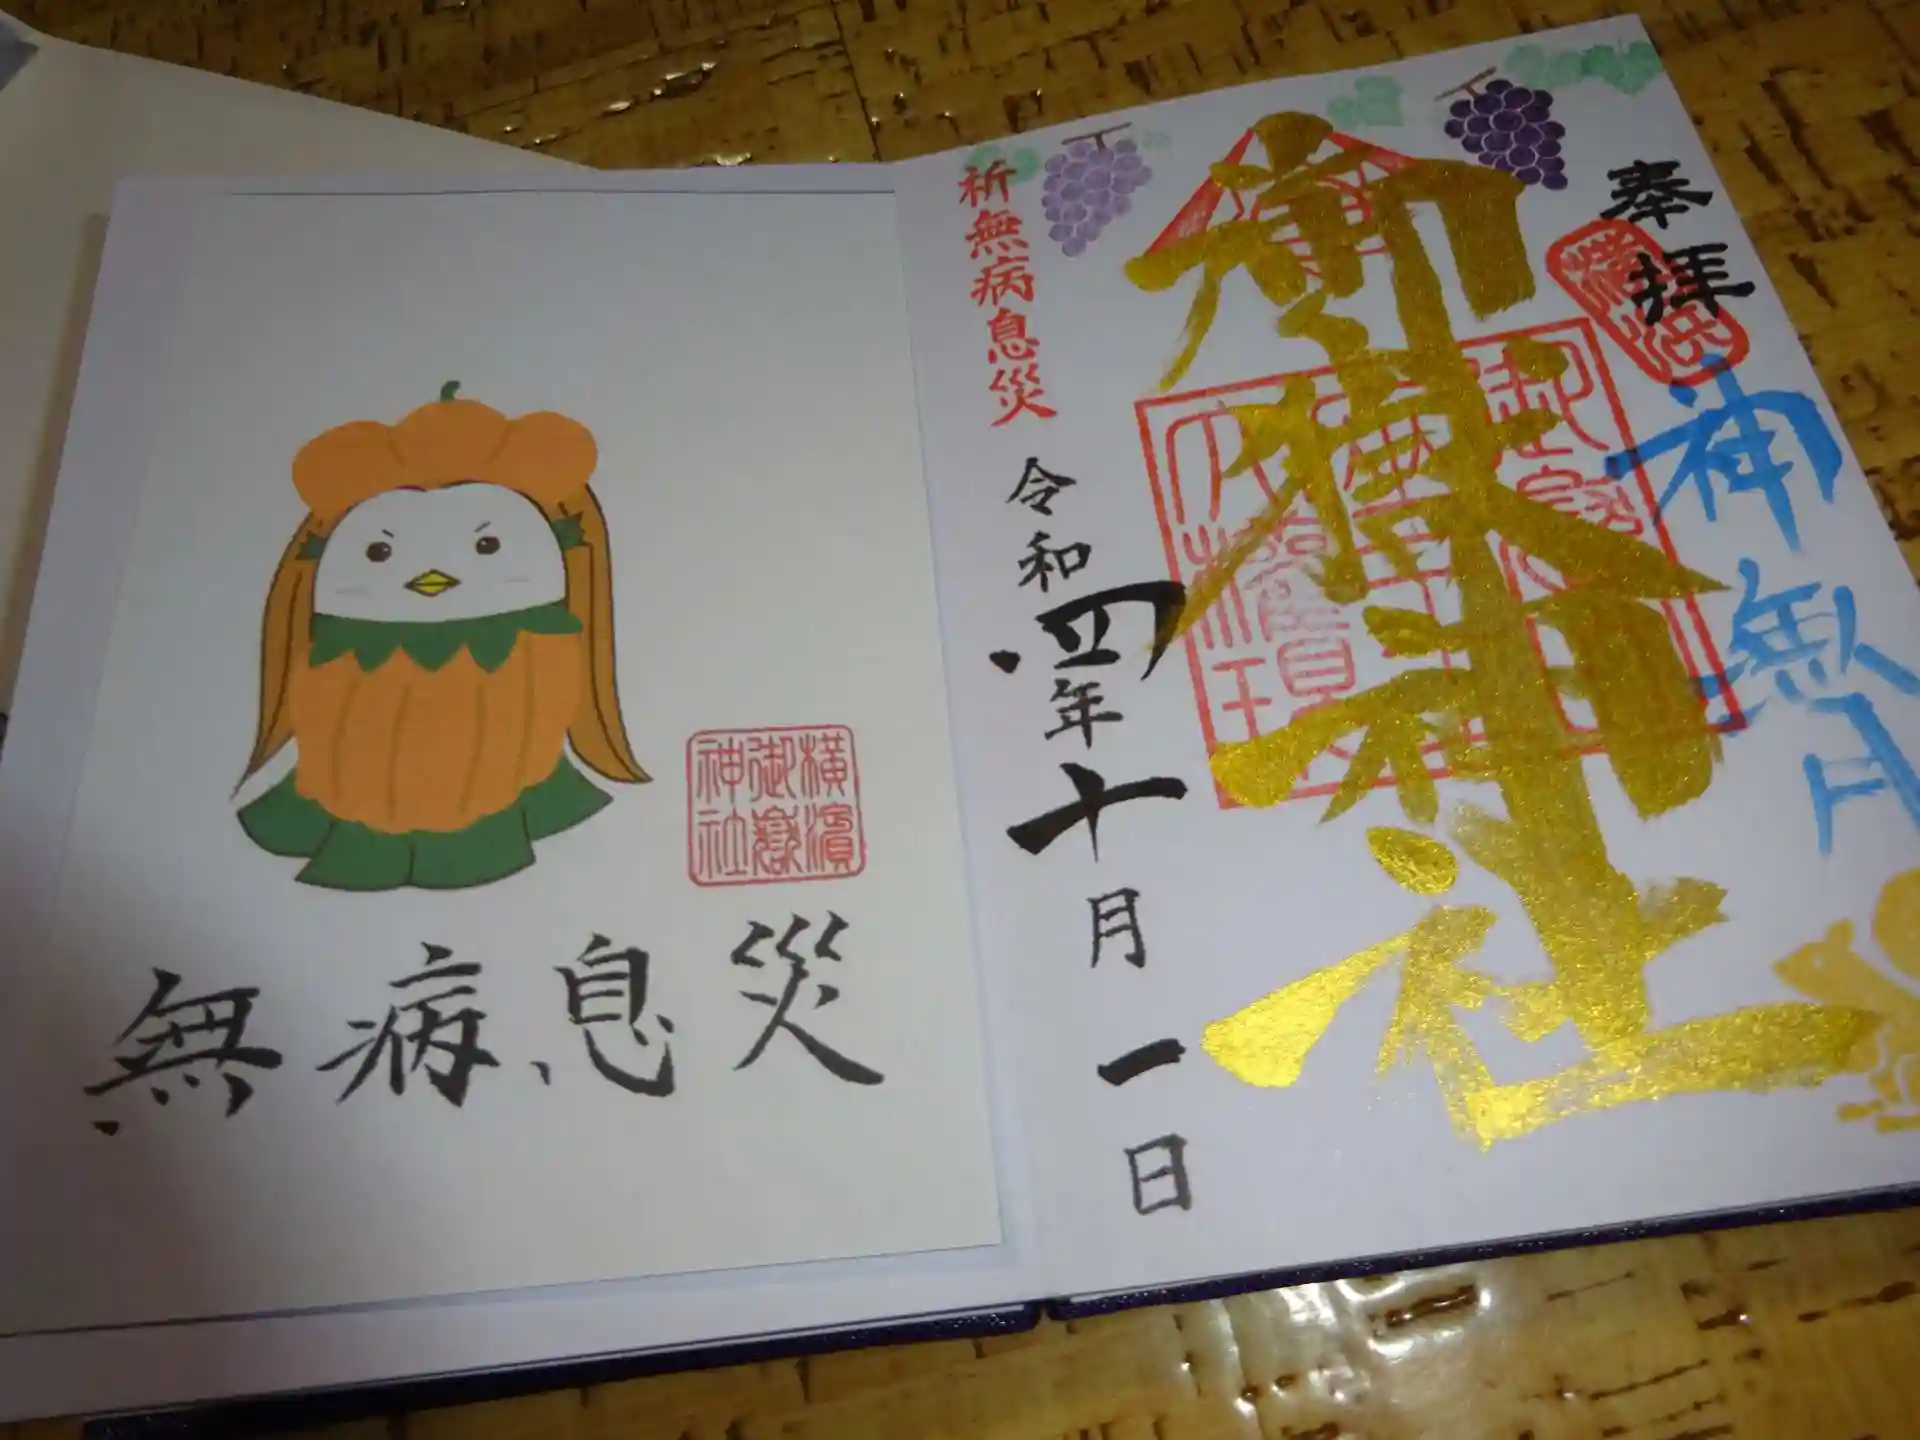 奉拝
神無月
御嶽神社
祈無病息災
令和四年十月一日
横濱
御嶽
神社
無病息災